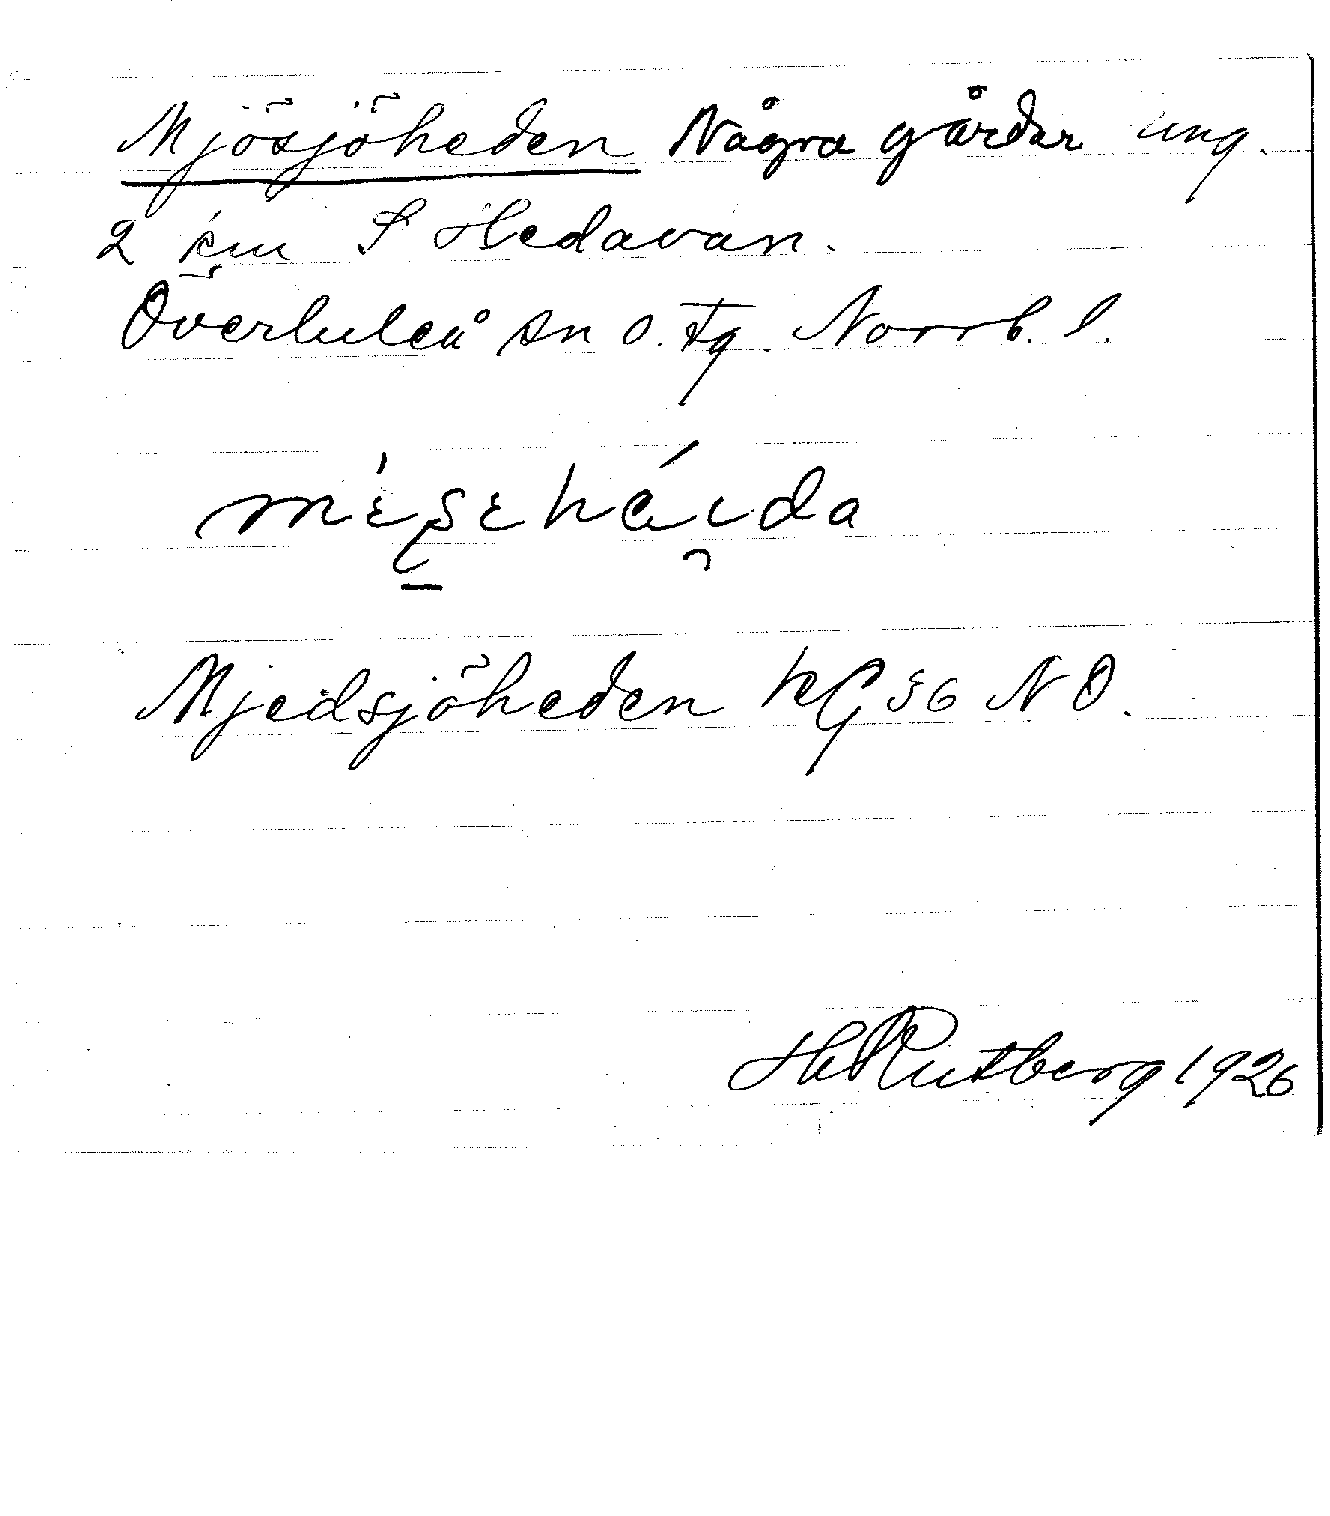 Mjösjöheden Några gårdar ung.
2 km S Hedavan.
Överluleå sn o. tg. Norrb. l.
mɛ́ʂɛháɩda
Mjedsjöheden KG 36 NO.
H Rutberg 1926